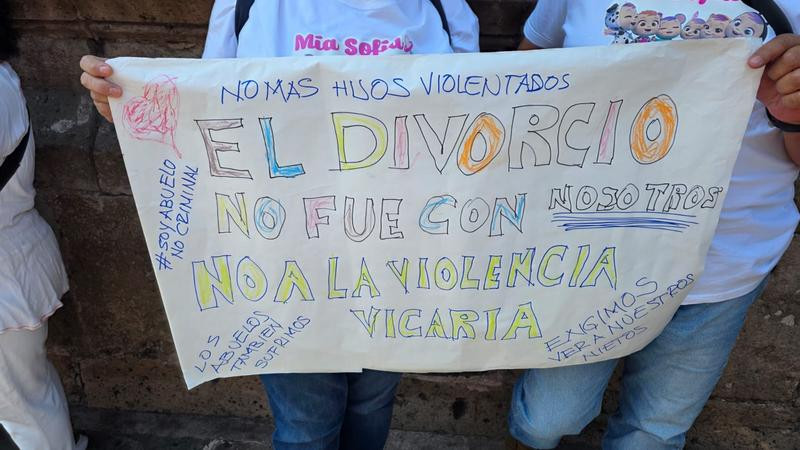 Mia Sofia
NO MAS HIJOS VIOLENTADOS
EL DIVORCIO
NO FUE CON NOSOTROS
NO A LA VIOLENCIA
VICARIA
#SOYABUELO
NO CRIMINAL
LOS
ABUELOS
TAMBIEN
SUFRIMOS
EXIGIMOS
VER A NUESTROS
NIETOS